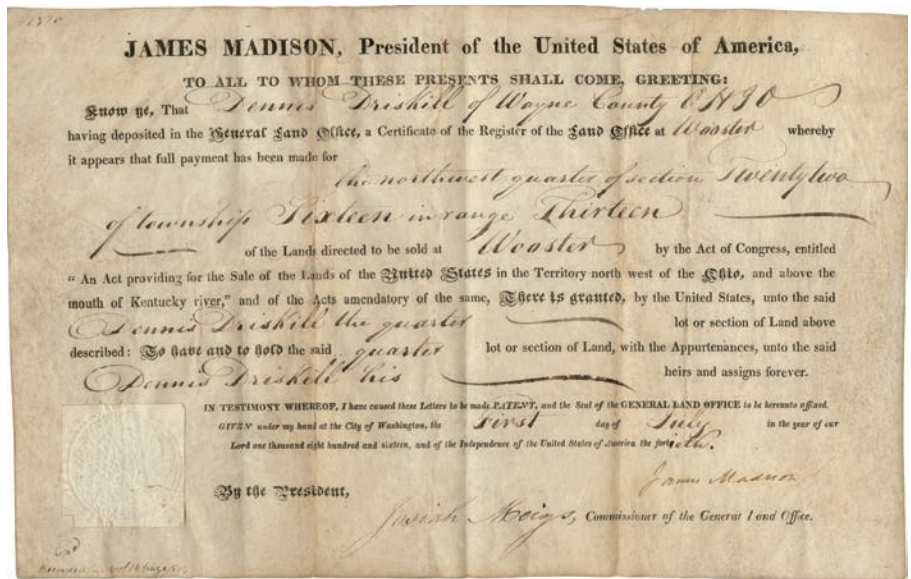 JAMES MADISON, President of the United States of America,
TO ALL TO WHOM THESE PRESENTS SHALL COME, GREETING:
Know ye, That Dennis Driskill of Wayne County OHIO
having deposited in the General Land Office, a Certificate of the Register of the Land Office at Wooster whereby
it appears that full payment has been made for
the northwest quarter of section Twenty two
of township Sixteen in range Thirteen
of the Lands directed to be sold at Wooster by the Act of Congress, entitled
"An Act providing for the Sale of the Lands of the United States in the Territory north west of the Ohio, and above the
mouth of Kentucky river," and of the Acts amendatory of the same, There is granted, by the United States, unto the said
Dennis Driskill the quarter lot or section of Land above
described: To have and to hold the said quarter lot or section of Land, with the Appurtenances, unto the said
Dennis Driskill his heirs and assigns forever.
IN TESTIMONY WHEREOF, I have caused these Letters to be made PATENT, and the Seal of the GENERAL LAND OFFICE to be hereunto affixed.
GIVEN under my hand at the City of Washington, the First day of July in the year of our
Lord one thousand eight hundred and sixteen, and of the Independence of the United States of America the fortieth.
James Madison
By the President,
Josiah Meigs, Commissioner of the General Land Office.